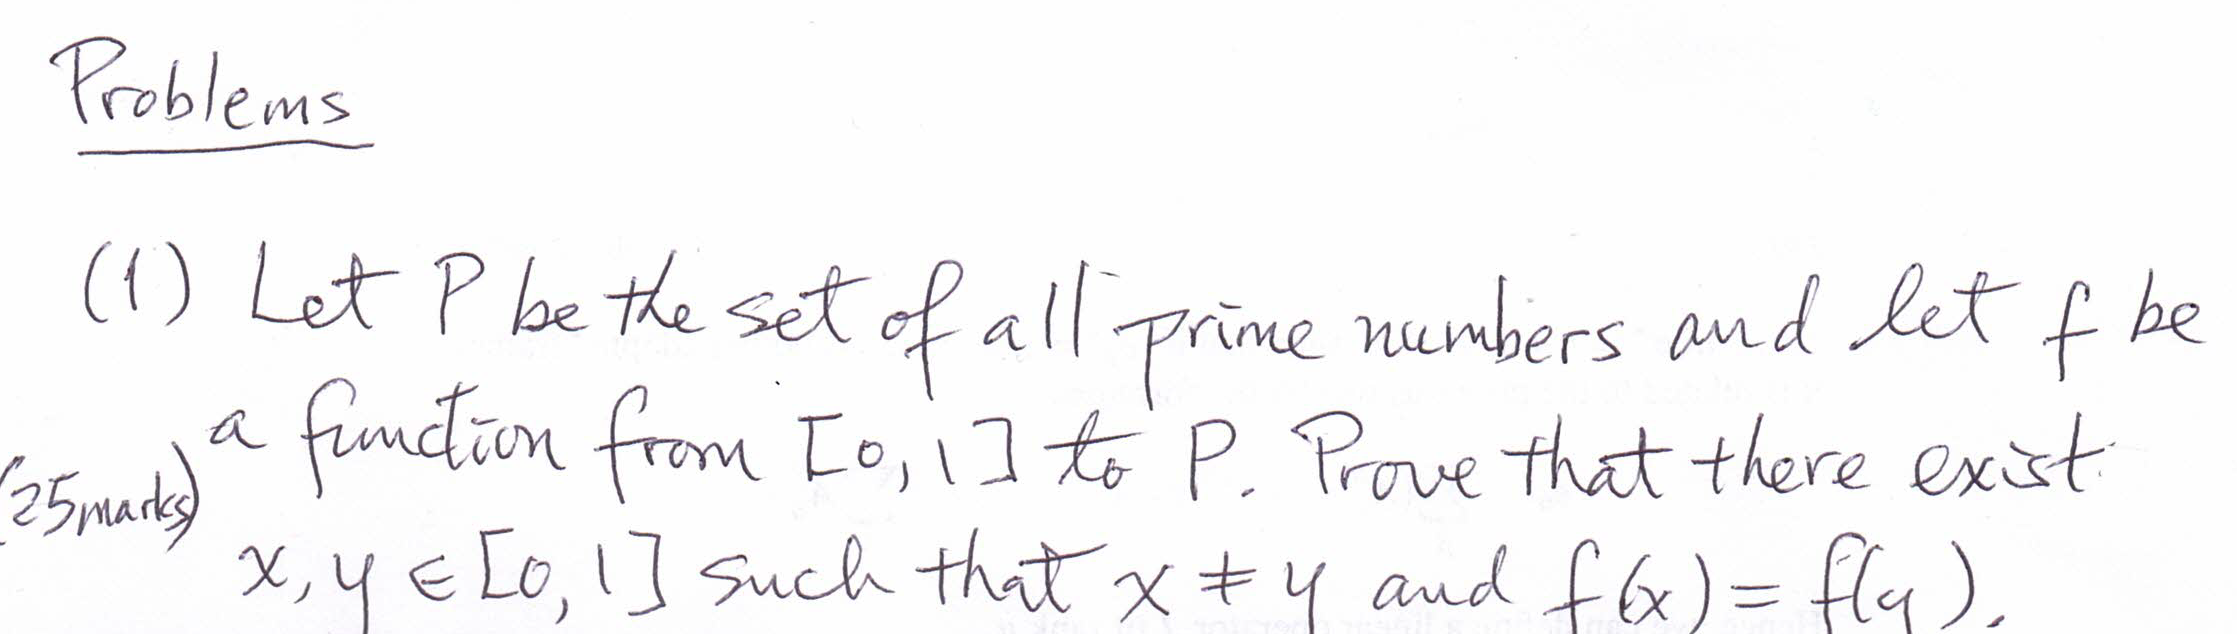 Problems
(1) Let P be the set of all prime numbers and let f be
a function from [0,1] to P. Prove that there exist
(25marks)
x, y ∈ [0, 1] such that x ≠ y and f(x) = f(y).